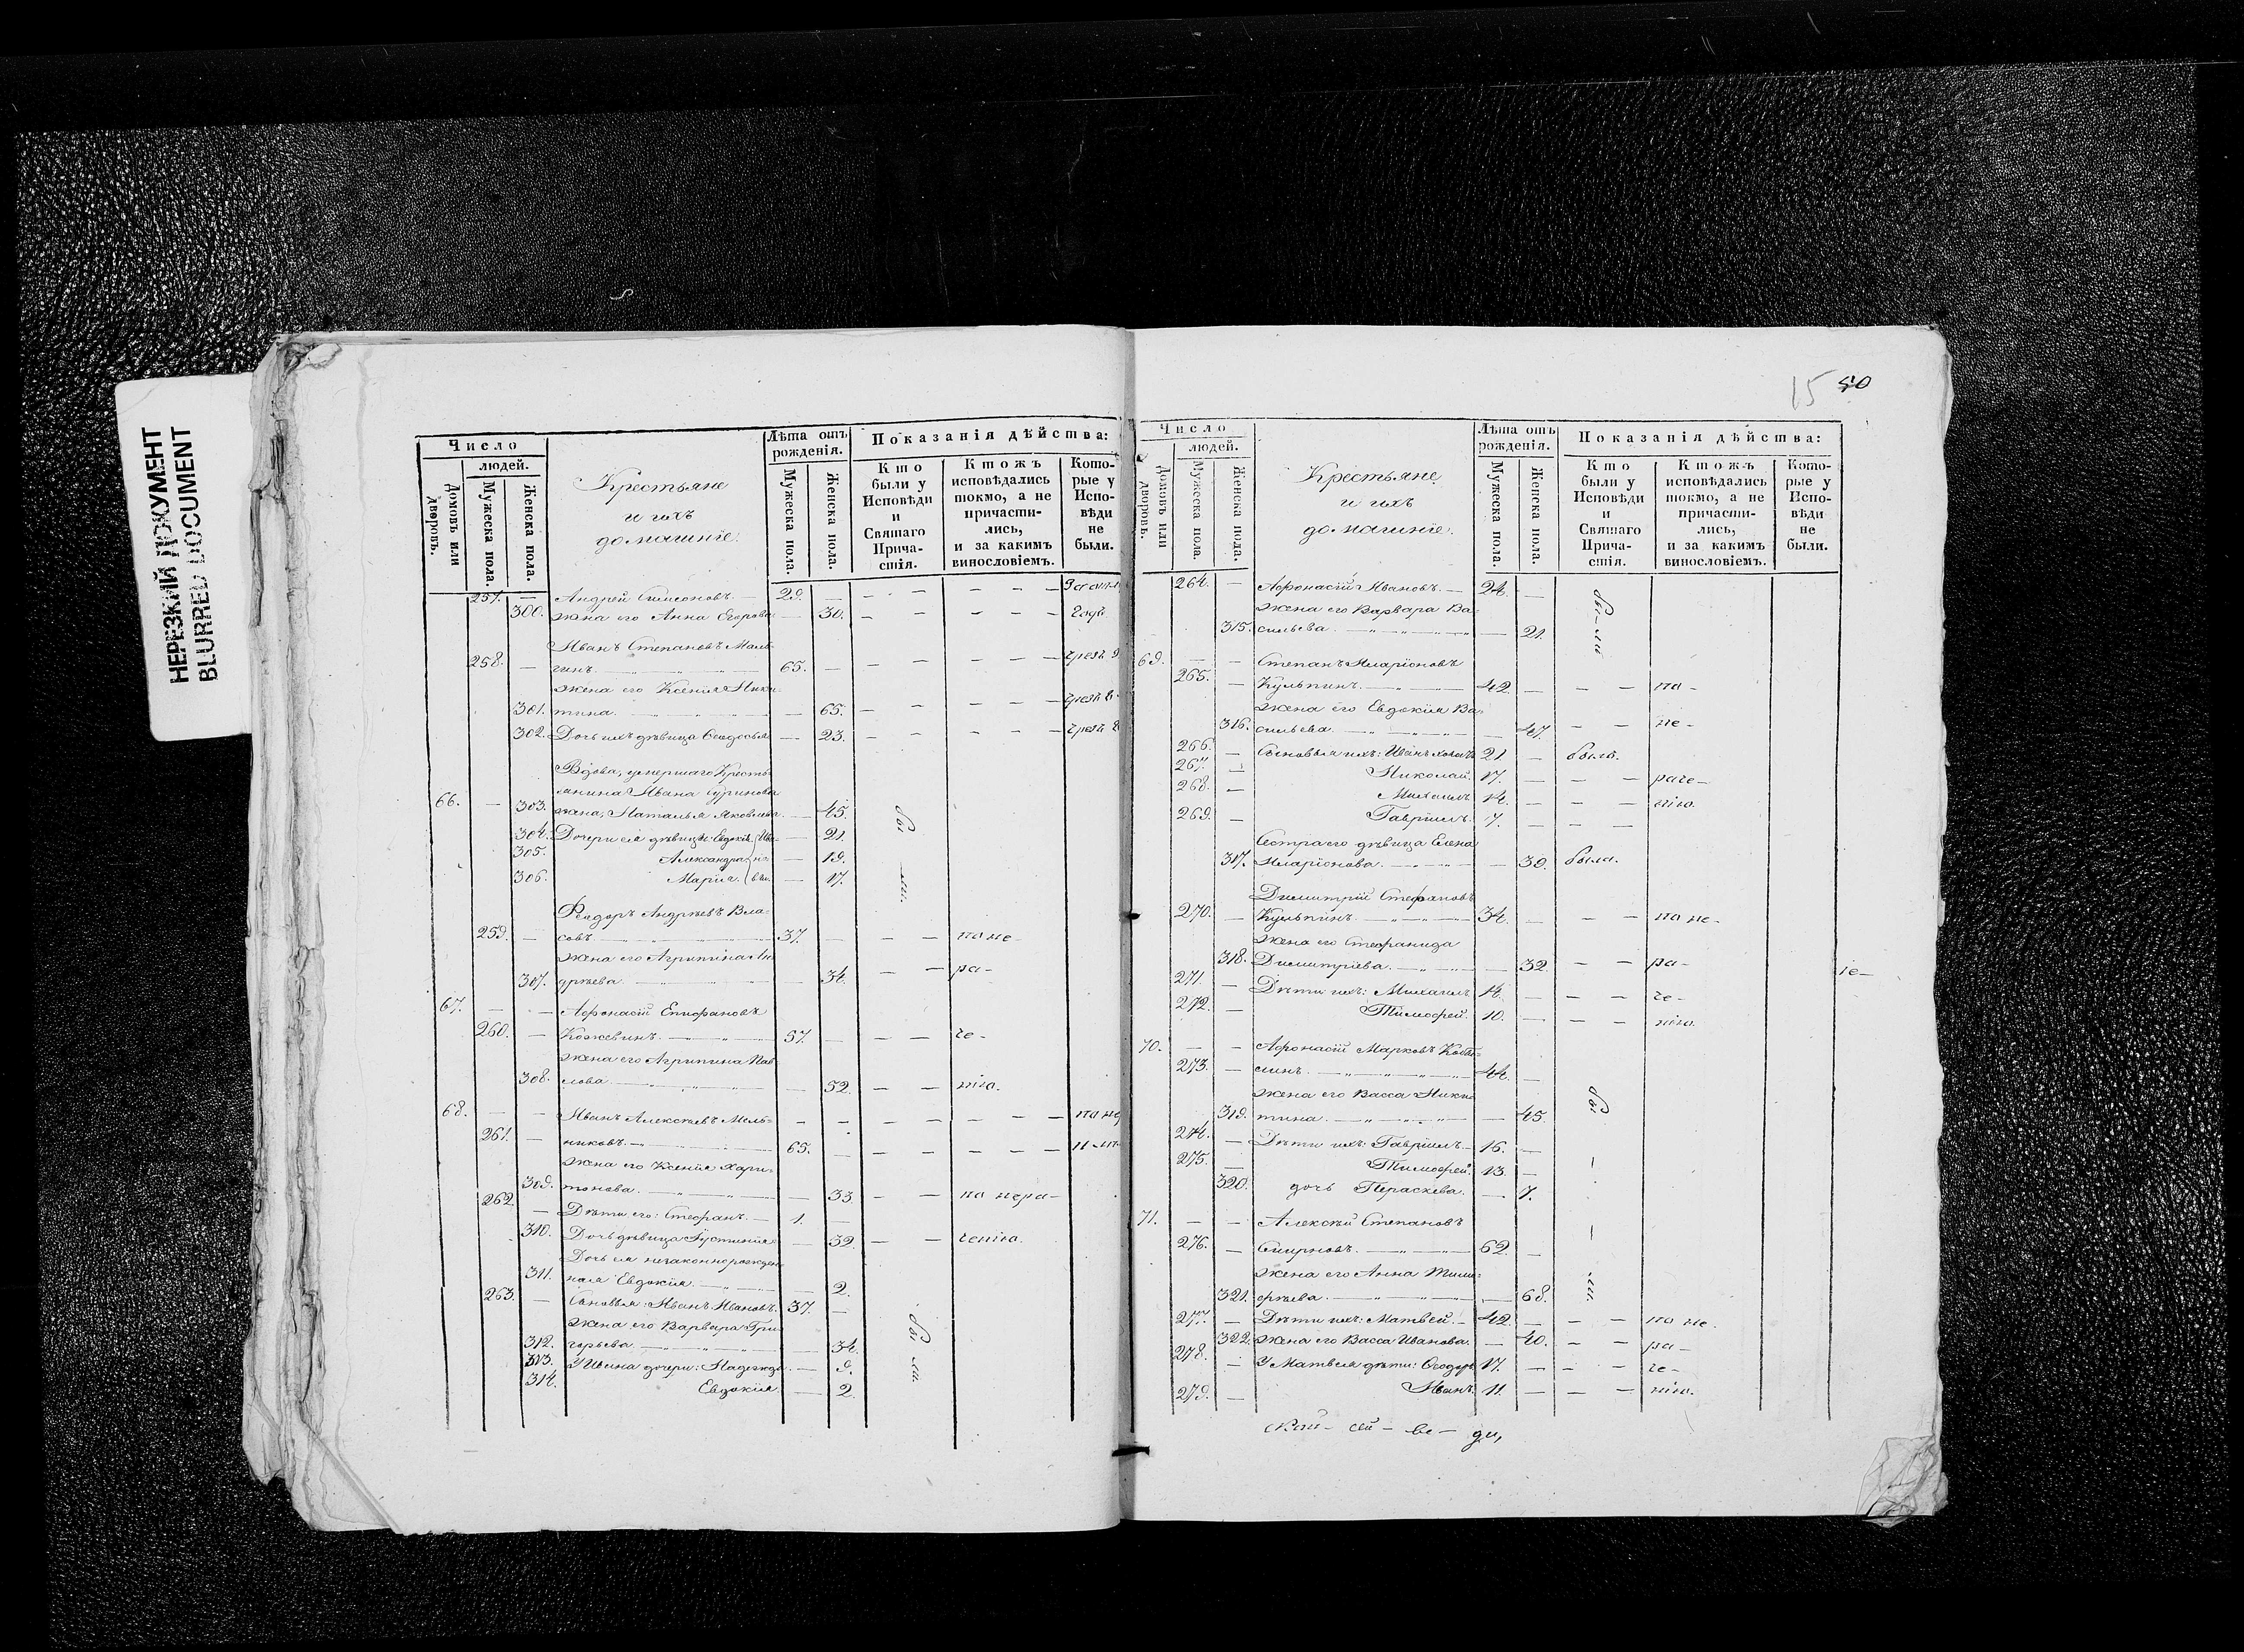 НЕРЕЗКИЙ ДОКУМЕНТ
BLURRED DOCUMENT
Число
людей.
Домовъ или дворовъ.
Мужеска пола.
Женска пола.
Крестьяне
и ихъ
домашніе.
Лѣта отъ рожденія.
Мужеска пола.
Женска пола.
Показанія дѣйства:
Кто были у Исповѣди и Святаго Прича-стія.
Ктожъ исповѣдались токмо, а не причасти-лись, и за какимъ винословіемъ.
Кото-рые у Испо-вѣди не были.
257. — Андрей Симеоновъ. — 29. — — — — —
300. жена его Анна Егорова — 30. — — — — годъ
Иванъ Степановъ Маль-
258. — гинъ. — 65. — — — — — —
жена его Ксенія Ники-
301. тина. — — 65. — — — —
302. Дочь ихъ дѣвица Ѳеодосья — 23. — — — —
Вдова, умершаго Кресть-
янина Ивана Гуринова
66. — 303. жена, Наталья Яковлева. — 45. бы
304. Дочери ея дѣвицы: Евдокія, Ива- — 21.
305. Александра, но- — 19.
306. Марія. вы. — 17. ли.
Ѳеодоръ Андреевъ Вла-
259. — совъ. — 37. — — — по не-
жена его Агрипина Ан-
307. дреева. — — 34. — — ра-
67. — — Афонасій Епифановъ
260. — Кожевинъ. — 57. — — — че-
жена его Агрипина Пав-
308. лова. — 52. — — нію.
68. — — Иванъ Алексѣевъ Мель-
261. — никовъ. — 65. — — — — —
жена его Ксенія Хари-
309. тонова. — — 33 — — по нера-
262. — Дѣти его: Стефанъ. — 1. —
310. Дочь дѣвица Іустинія — 32. — — ченію.
Дочь ея незаконнорожден-
311. ная Евдокія. — — 2.
263. — Сыновья: Иванъ Ивановъ. 37. —
жена его Варвара Гри-
312. горьева. — — 34. бы
313. У Ивана дочери: Надежда. — 9.
314. Евдокія — 2. ли.
15 50
Число
людей.
Домовъ или дворовъ.
Мужеска пола.
Женска пола.
Крестьяне
и ихъ
домашніе.
Лѣта отъ рожденія.
Мужеска пола.
Женска пола.
Показанія дѣйства:
Кто были у Исповѣди и Святаго Прича-стія.
Ктожъ исповѣдались токмо, а не причасти-лись, и за какимъ винословіемъ.
Кото-рые у Испо-вѣди не были.
264. — Афонасій Ивановъ. — 24. — бы-ли
жена его Варвара Ва-
315. сильева. — — 21.
69. — — Степанъ Иларіоновъ
265. — Кульпинъ. — 42. — — — по -
жена его Евдокія Ва-
316. сильева. — 47. — — не -
266. — Сыновья ихъ: Иванъ 21 — былъ.
267. — Николай. 17. — — — раче-
268. — Михаилъ 14. — — — нію.
269. — Гавріилъ. 7. — — —
Сестра его дѣвица Елена
317. Иларіонова. — — 39. была.
Димитрій Стефановъ
270. — Кульпинъ. — 34. — — — по не-
жена его Стефанида
318. Димитріева. — — 32. — — ра-
271. — Дѣти ихъ: Михаилъ 14. — — — че-
272. — Тимофей. 10. — — — нію.
іе-
70. — — Афонасій Марковъ
273. — синъ. — 44. —
жена его Васса Ники- бы
319. тина. — — 45.
274. — Дѣти ихъ: Гавріилъ — 16. —
275. — Тимофей. 13. —
320. дочь Параскева. — 7.
71. — — Алексѣй Степановъ
276. — Смирновъ. — 62. —
жена его Анна Тимо-
321. фѣева. — — 68. ли.
277. — Дѣти ихъ: Матвей. — 42. — — — по не.
322. жена его Васса Иванова. — 40. — ра-
278. — У Матвея дѣти: Ѳеодоръ 17. — — — че-
279. — Иванъ. 11. — — — нію.